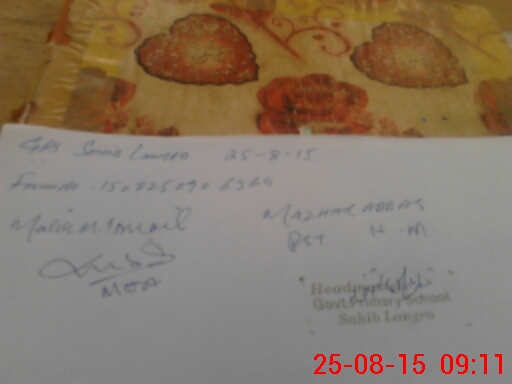 GPS Sahib Langra 25-8-15
Malik M. Ismail
MAZHAR ABBAS
PST H.M
MEA
Headmaster
Govt. Primary School
Sahib Langra
25-08-15 09:11